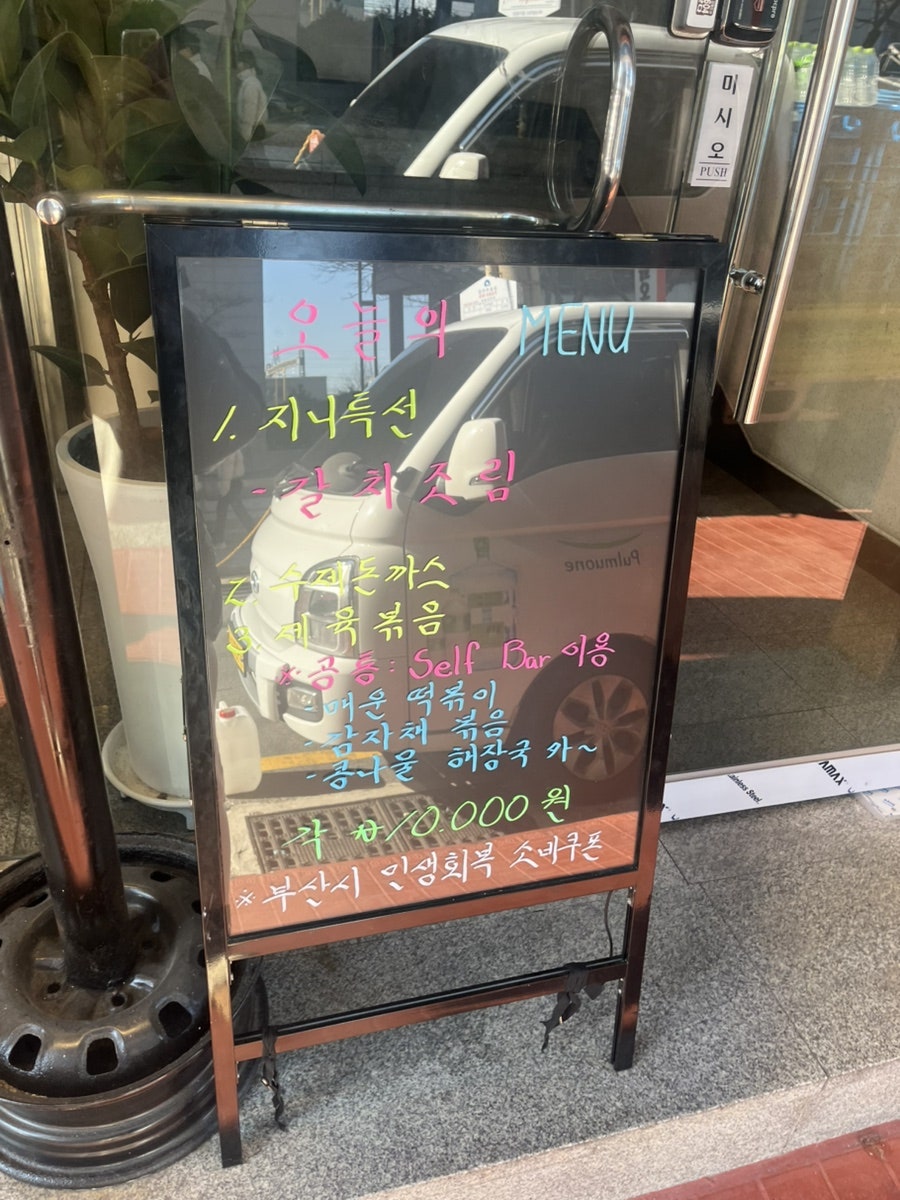 미시오
PUSH
오늘의 MENU
1. 지니특선
- 갈치조림
2. 수제돈까스
3. 제육볶음
※ 공통: Self Bar 이용
- 매운 떡볶이
- 감자채 볶음
- 콩나물 해장국 外~
각 ₩10.000원
※ 부산시 인생회복 소비쿠폰
Pulmuone
Stainless Steel